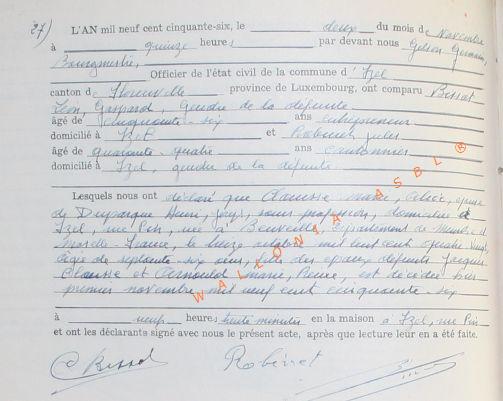 27) L'AN mil neuf cent cinquante-six, le deux du mois de Novembre
à quinze heures par devant nous Gérson Germain,
Bourgmestre
Officier de l'état civil de la commune d'Izel
canton de Florenville province de Luxembourg, ont comparu Bessat
Léon, Gaspard, Gendre de la défunte
âgé de cinquante-six ans entrepreneur
domicilié à Izel et Robinet Jules
âgé de quarante-quatre ans cantonnier
domicilié à Izel, gendre de la défunte
Lesquels nous ont déclaré que Clausse Marie, épouse
de Duparque Henri, sans profession, domiciliée à
Izel, rue Pin, née à Beuveille, Département de Meurthe et
Moselle-France, le treize octobre mil huit cent quatre-vingt
âgée de septante-six ans, fille des époux défunts Jacques
Clausse et Arnould Marie, est décédée hier
premier novembre mil neuf cent cinquante-six
à neuf heures trente minutes en la maison à Izel, rue Pin
et ont les déclarants signé avec nous le présent acte, après que lecture leur en a été faite.
Robinet
WALLONIA ASBL ®